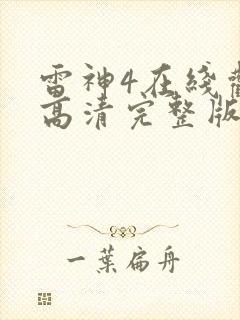 雷神4在线
高清完整版
一葉扁舟